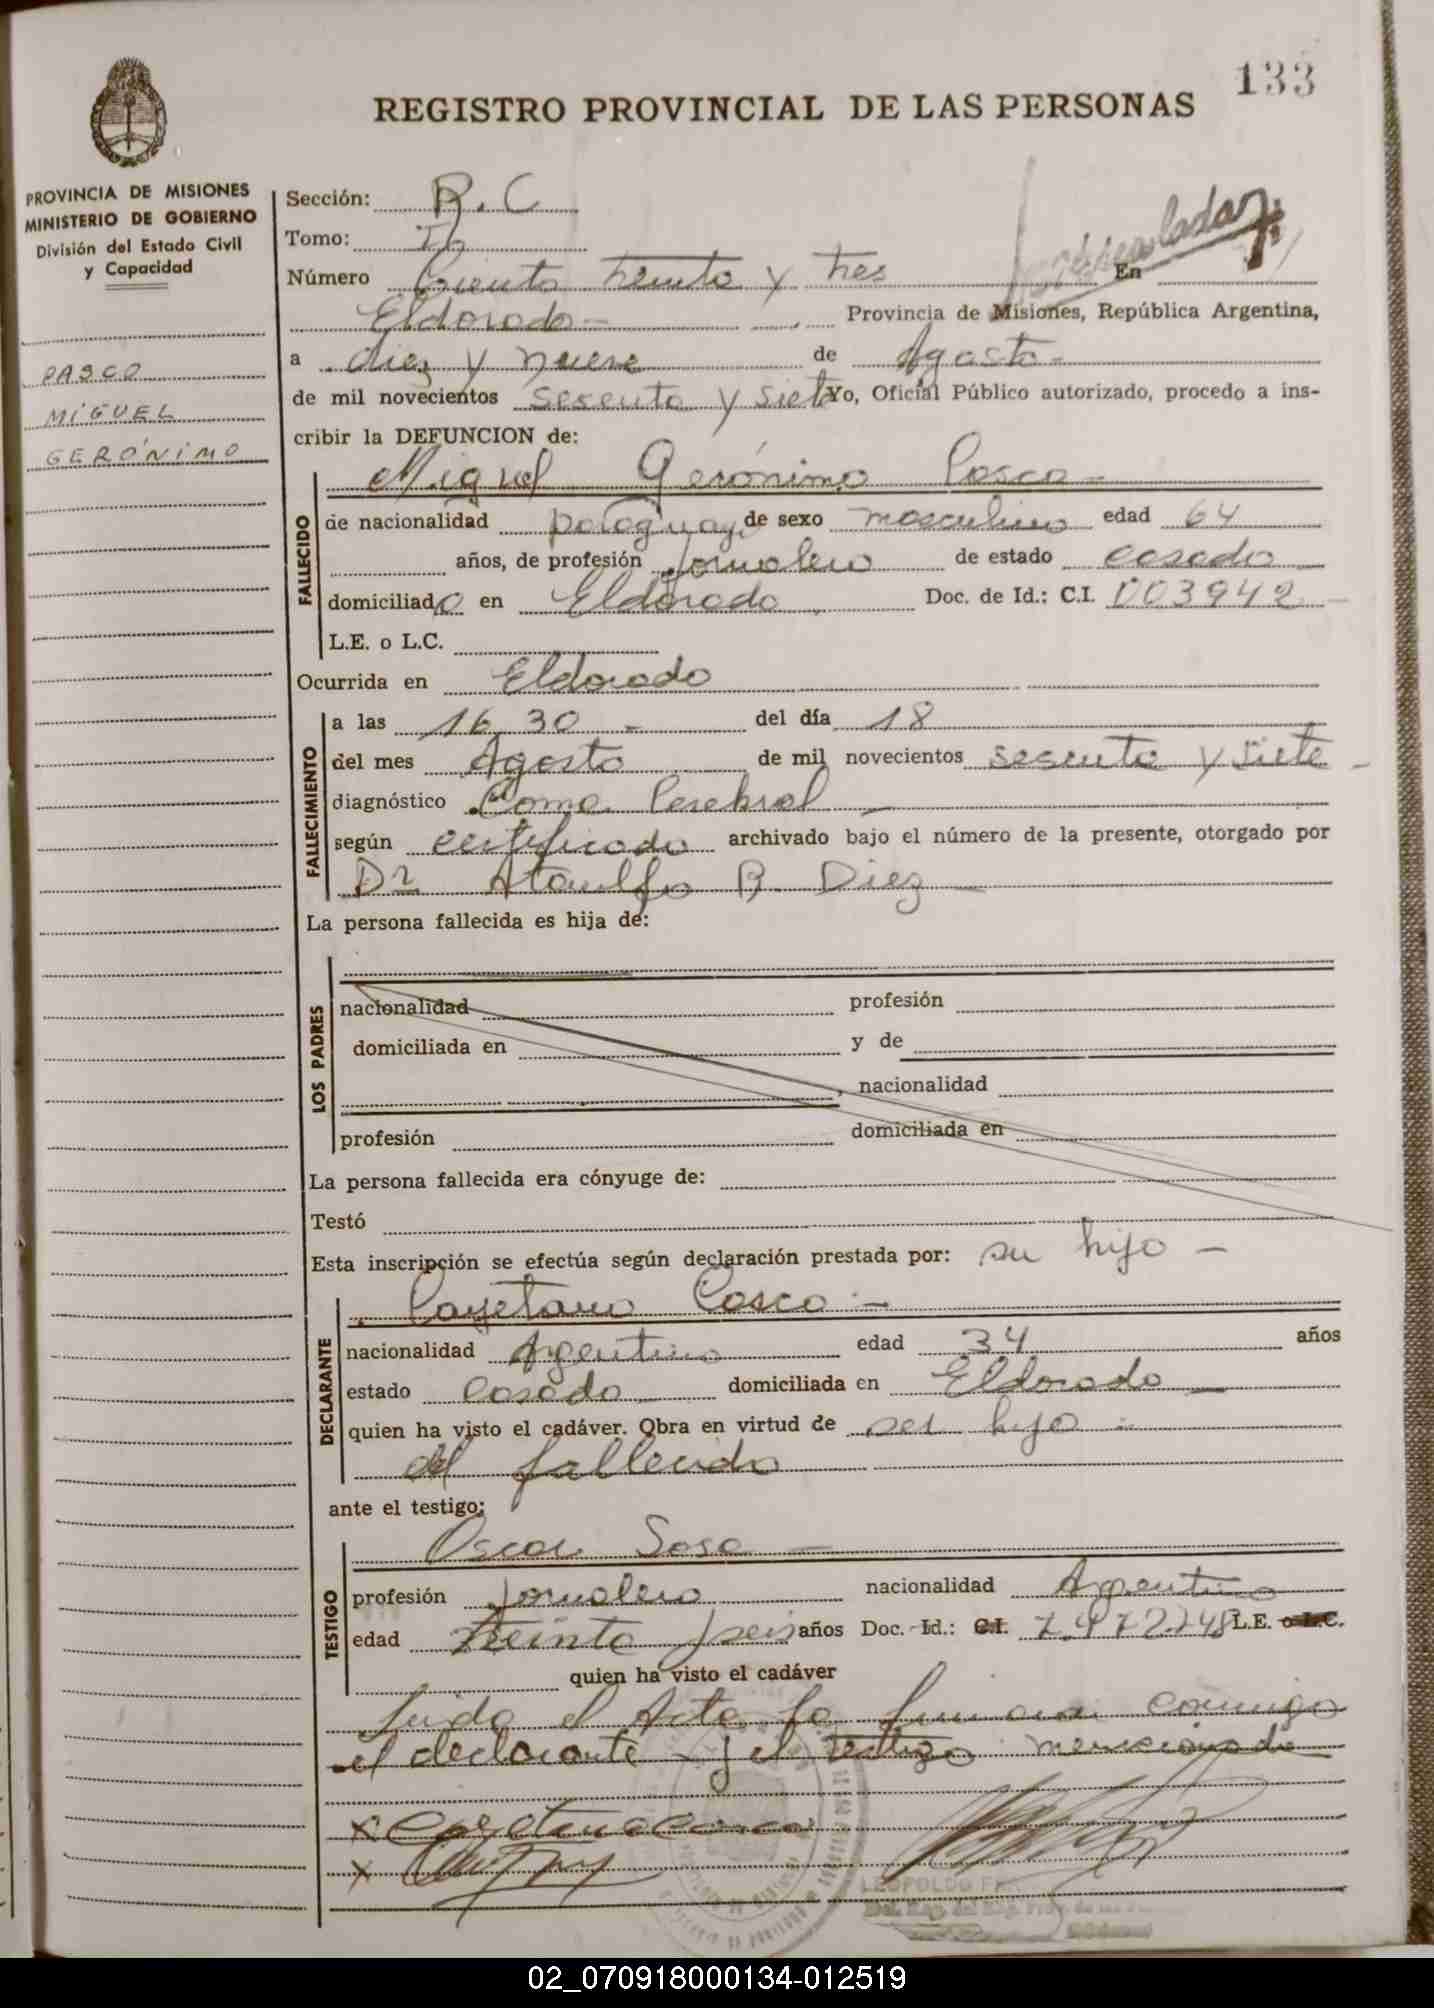 133
REGISTRO PROVINCIAL DE LAS PERSONAS
PROVINCIA DE MISIONES
MINISTERIO DE GOBIERNO
División del Estado Civil
y Capacidad
PASCO
MIGUEL
GERÓNIMO
Sección: R. C
Tomo:
Número Ciento treinta y tres En
Eldorado - Provincia de Misiones, República Argentina,
a diez y nueve de Agosto -
de mil novecientos sesenta y siete Yo, Oficial Público autorizado, procedo a ins-
cribir la DEFUNCION de:
FALLECIDO
Miguel Gerónimo Casco -
de nacionalidad paraguaya de sexo masculino edad 64
años, de profesión Jornalero de estado casado
domiciliado en Eldorado Doc. de Id.: C.I. 003942 -
L.E. o L.C.
Ocurrida en Eldorado
FALLECIMIENTO
a las 16,30 - del día 18
del mes Agosto de mil novecientos sesenta y siete -
diagnóstico Coma Cerebral -
según certificado archivado bajo el número de la presente, otorgado por
Dr Ataulfo B. Diez -
La persona fallecida es hija de:
LOS PADRES
nacionalidad profesión
domiciliada en y de
nacionalidad
profesión domiciliada en
La persona fallecida era cónyuge de:
Testó
Esta inscripción se efectúa según declaración prestada por: su hijo -
DECLARANTE
Cayetano Casco -
nacionalidad Argentino edad 34 años
estado Casado domiciliada en Eldorado -
quien ha visto el cadáver. Obra en virtud de ser hijo -
del fallecido
ante el testigo:
TESTIGO
Oscar Sosa -
profesión Jornalero nacionalidad Argentino
edad treinta y seis años Doc. Id.: C.I. 7.472.248 L.E. o L.C.
quien ha visto el cadáver
Leida el Acta la firman conmigo
el declarante y el testigo mencionado
x Cayetano Casco
x
LEOPOLDO
02_070918000134-012519